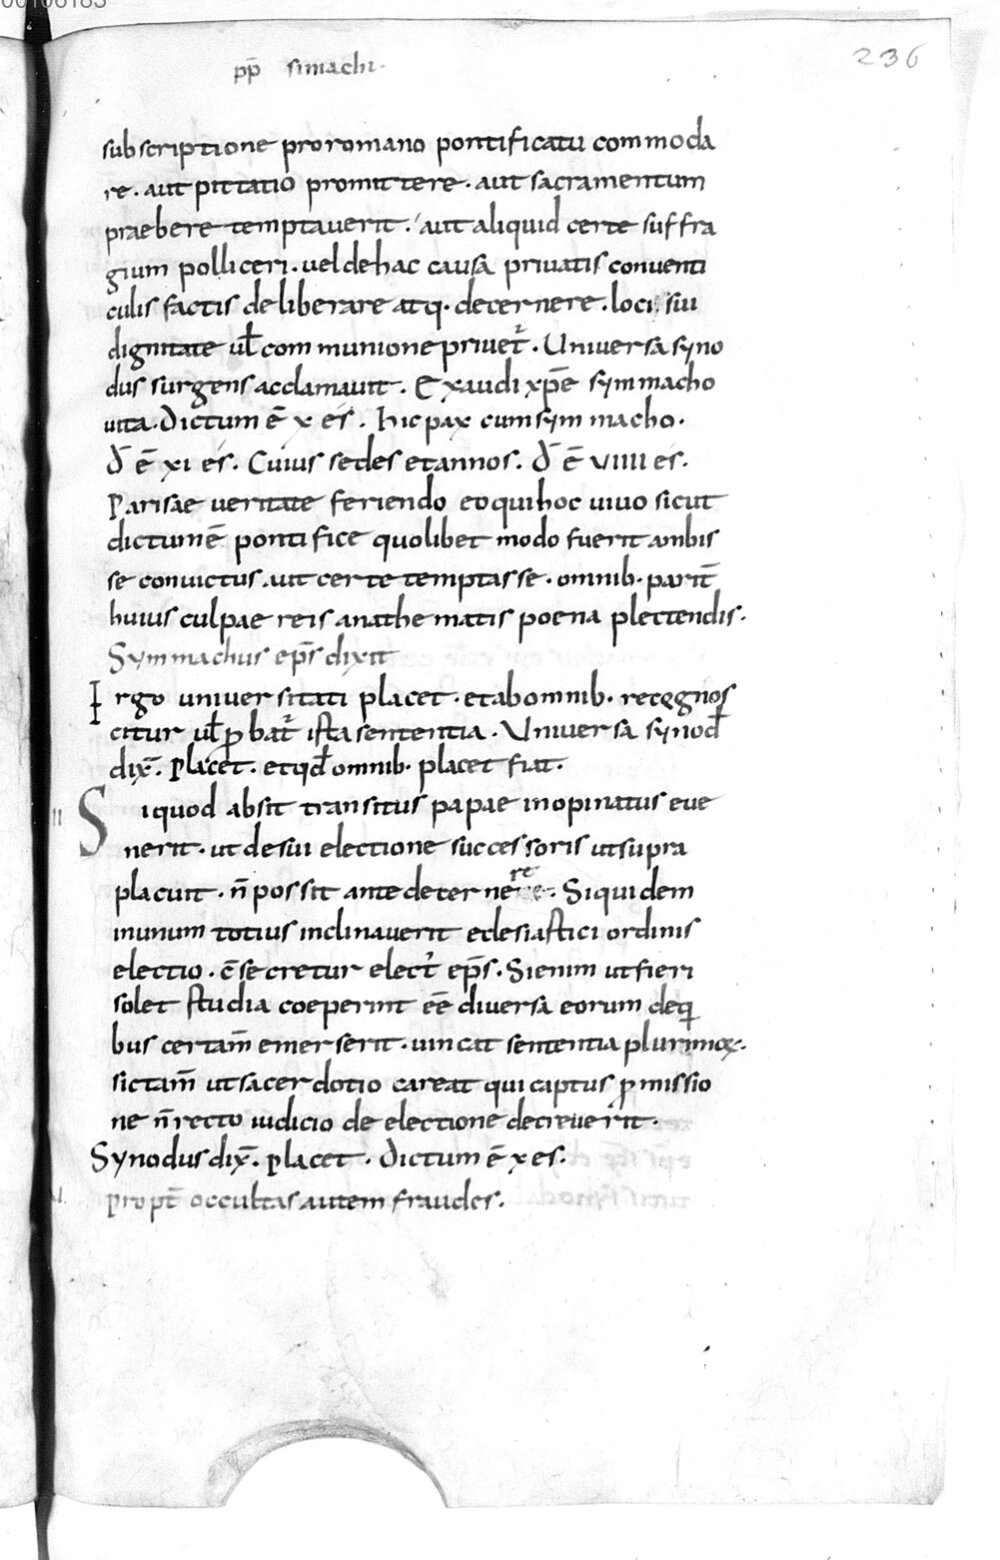 00106183
pp̄ simachi·
236
subscriptione proromano pontificatu commoda
re. aut pittatio promittere. aut sacramentum
praebere temptauerit. aut aliquid certe suffra
gium polliceri. uel dehac causa priuatis conuenti
culis factis deliberare atq· decernere. loci sui
dignitate ul̄ communione priuet᷑. Uniuersa syno
dus surgens acclamauit. Exaudi xp̄e symmacho
uita. Dictum ē x es. hic pax cum symmacho.
d̄ ē xi es. Cuius sedes et annos. d̄ ē viiii es.
Parisae ueritate feriendo eo qui hoc uiuo sicut
dictum ē pontifice quolibet modo fuerit ambis
se conuictus aut certe temptasse. omnib· parit̄
huius culpae reis anathematis poena plectendis.
Symmachus ep̄s dixit
Irgo uniuersitati placet. et ab omnib· recognos
citur ul̄ ꝓbat᷑ ista sententia. Uniuersa synod̄
dix̄. Placet. et qd̄ omnib· placet fiat.
II Siquod absit transitus papae inopinatus eue
nerit. ut de sui electione successoris ut supra
placuit. n̄ possit ante decernere. Siquidem
inunum totius inclinauerit eclesiastici ordinis
electio. c̄secretur elect᷑ ep̄s. Si enim ut fieri
solet studia coeperint ēe diuersa eorum deq̄
bus certam̄ emerserit. uincat sententia plurimoꝝ.
sic tam̄ ut sacerdotio careat qui captus ꝓmissio
ne n̄ recto iudicio de electione decreuerit.
Synodus dix̄. Placet. Dictum ē x es.
propt̄ occultas autem fraudes.